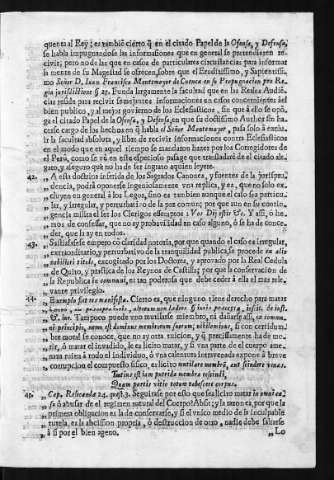 quentia al Rey; es tambiē cierto q̄ en el citado Papel de la Ofensa, y Defensa,
se habla impugnandose las informaciones que en general se pretendieren re
civir; pero no de las que en casos de particulares circunstancias para informar
la mente de su Magestad se ofrecen, sobre que el Eruditissimo, y Sapientissi
mo Señor D. Iuan Francisco Montemayor de Cuenca en su Propugnacion pro Re
gia jurisdictione §. Funda largamente la facultad que en las Reales Audiē
cias reside para recivir semejantes informaciones en casos concernientes del
bien publico, y al mejor govierno de los Eclesiasticos, sin que à ello se opō
ga el citado Papel de la Ofensa, y Defensa, en que su doctissimo Author sin ha
cerse cargo de los hechos en q̄ habla el Señor Montemayor, para solo à embia
ir la facultad absoluta, y libre de recivir informaciones contra Eclesiasticos
en el modo que en aquel tiempo se mandaron hazer por los Corregidores del
Perù, como se vè en este especioso pasage que trasladarè de el citado ale-
gato, y alguno què no ha de ser ingrato aquien leyere.
42. A esta doctrina inferida de los Sagrados Canones, y fuentes de la jurispru
dencia, podrà oponerse ingeniosamente vna replica, y es, que no solo ex-
cluye en general à los Legos, sino es tambien aunque el caso sea particu-
lar, y irregular, y perturbativo de la paz comun; por que aun en su contin-
gencia milita el ser los Clerigos esemptos: Vos Dij estis &c. Y assi, ò he-
mos de confesar, que no ay probanilidad en caso alguno, ò se ha de conce-
der, que la ay en todos.
43. Satisfasese empero cō claridad notoria, por que quando el caso es irregular,
extraordinario, y perturbativo de la tranquilidad publica, se procede en aliz
nobiliori titulo, encogitado por los Doctores, y aprovado por la Real Cedula
de Quito, y practica de los Reynos de Castilla; por que la conservacion de
la Republica in communi, es tan poderosa que debe ceder à ella el mas rele-
vante privilegio.
44. Exemplo sit res manifesta. Cierto es, que ninguno tiene derecho para matar
&c. inr. Tampoco puede vno mutilarse miembro, ni dañarse assi, ex commu
ni principio, nemo est dominus membrorum suorum; nihilominus, si con certidum-
bre moral se conoce, que no ay otra razion, y q̄ precissamente ha de mo-
rir, ò matar el invadido, le es licito matar, y si vna parte de el cuerpo ame-
naza ruina à todo el individuo, ò vna calentura intervenada expone à breve
corrupcion el compuesto fisico, es licito mutilare membra, aut scindere venas.
Tutius est iam putrida membra rescindi,
Quam partis vitio totum tabescere corpus.
45. Cap. Rescanda 24. q. 3. Siguese por esto que sea licito matar in commu-
ne ò abusar de el regimen natural del Cuerpo? Absit; y la razon es, por que la
primera obligacion es la de conservarse, y si el vnico medio de la inculpable
tutela, es la abscission propria, ò destruccion de otro, nadie debe faltarse
à si por el bien ageno,
„ Lo